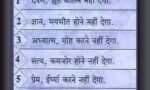 1 दर्पण, झूठ बोलने नहीं देगा.
2 ज्ञान, भयभीत होने नहीं देगा.
3 अध्यात्म, मोह करने नहीं देगा.
4 सत्य, कमजोर होने नहीं देगा.
5 प्रेम, ईर्ष्या करने नहीं देगा.